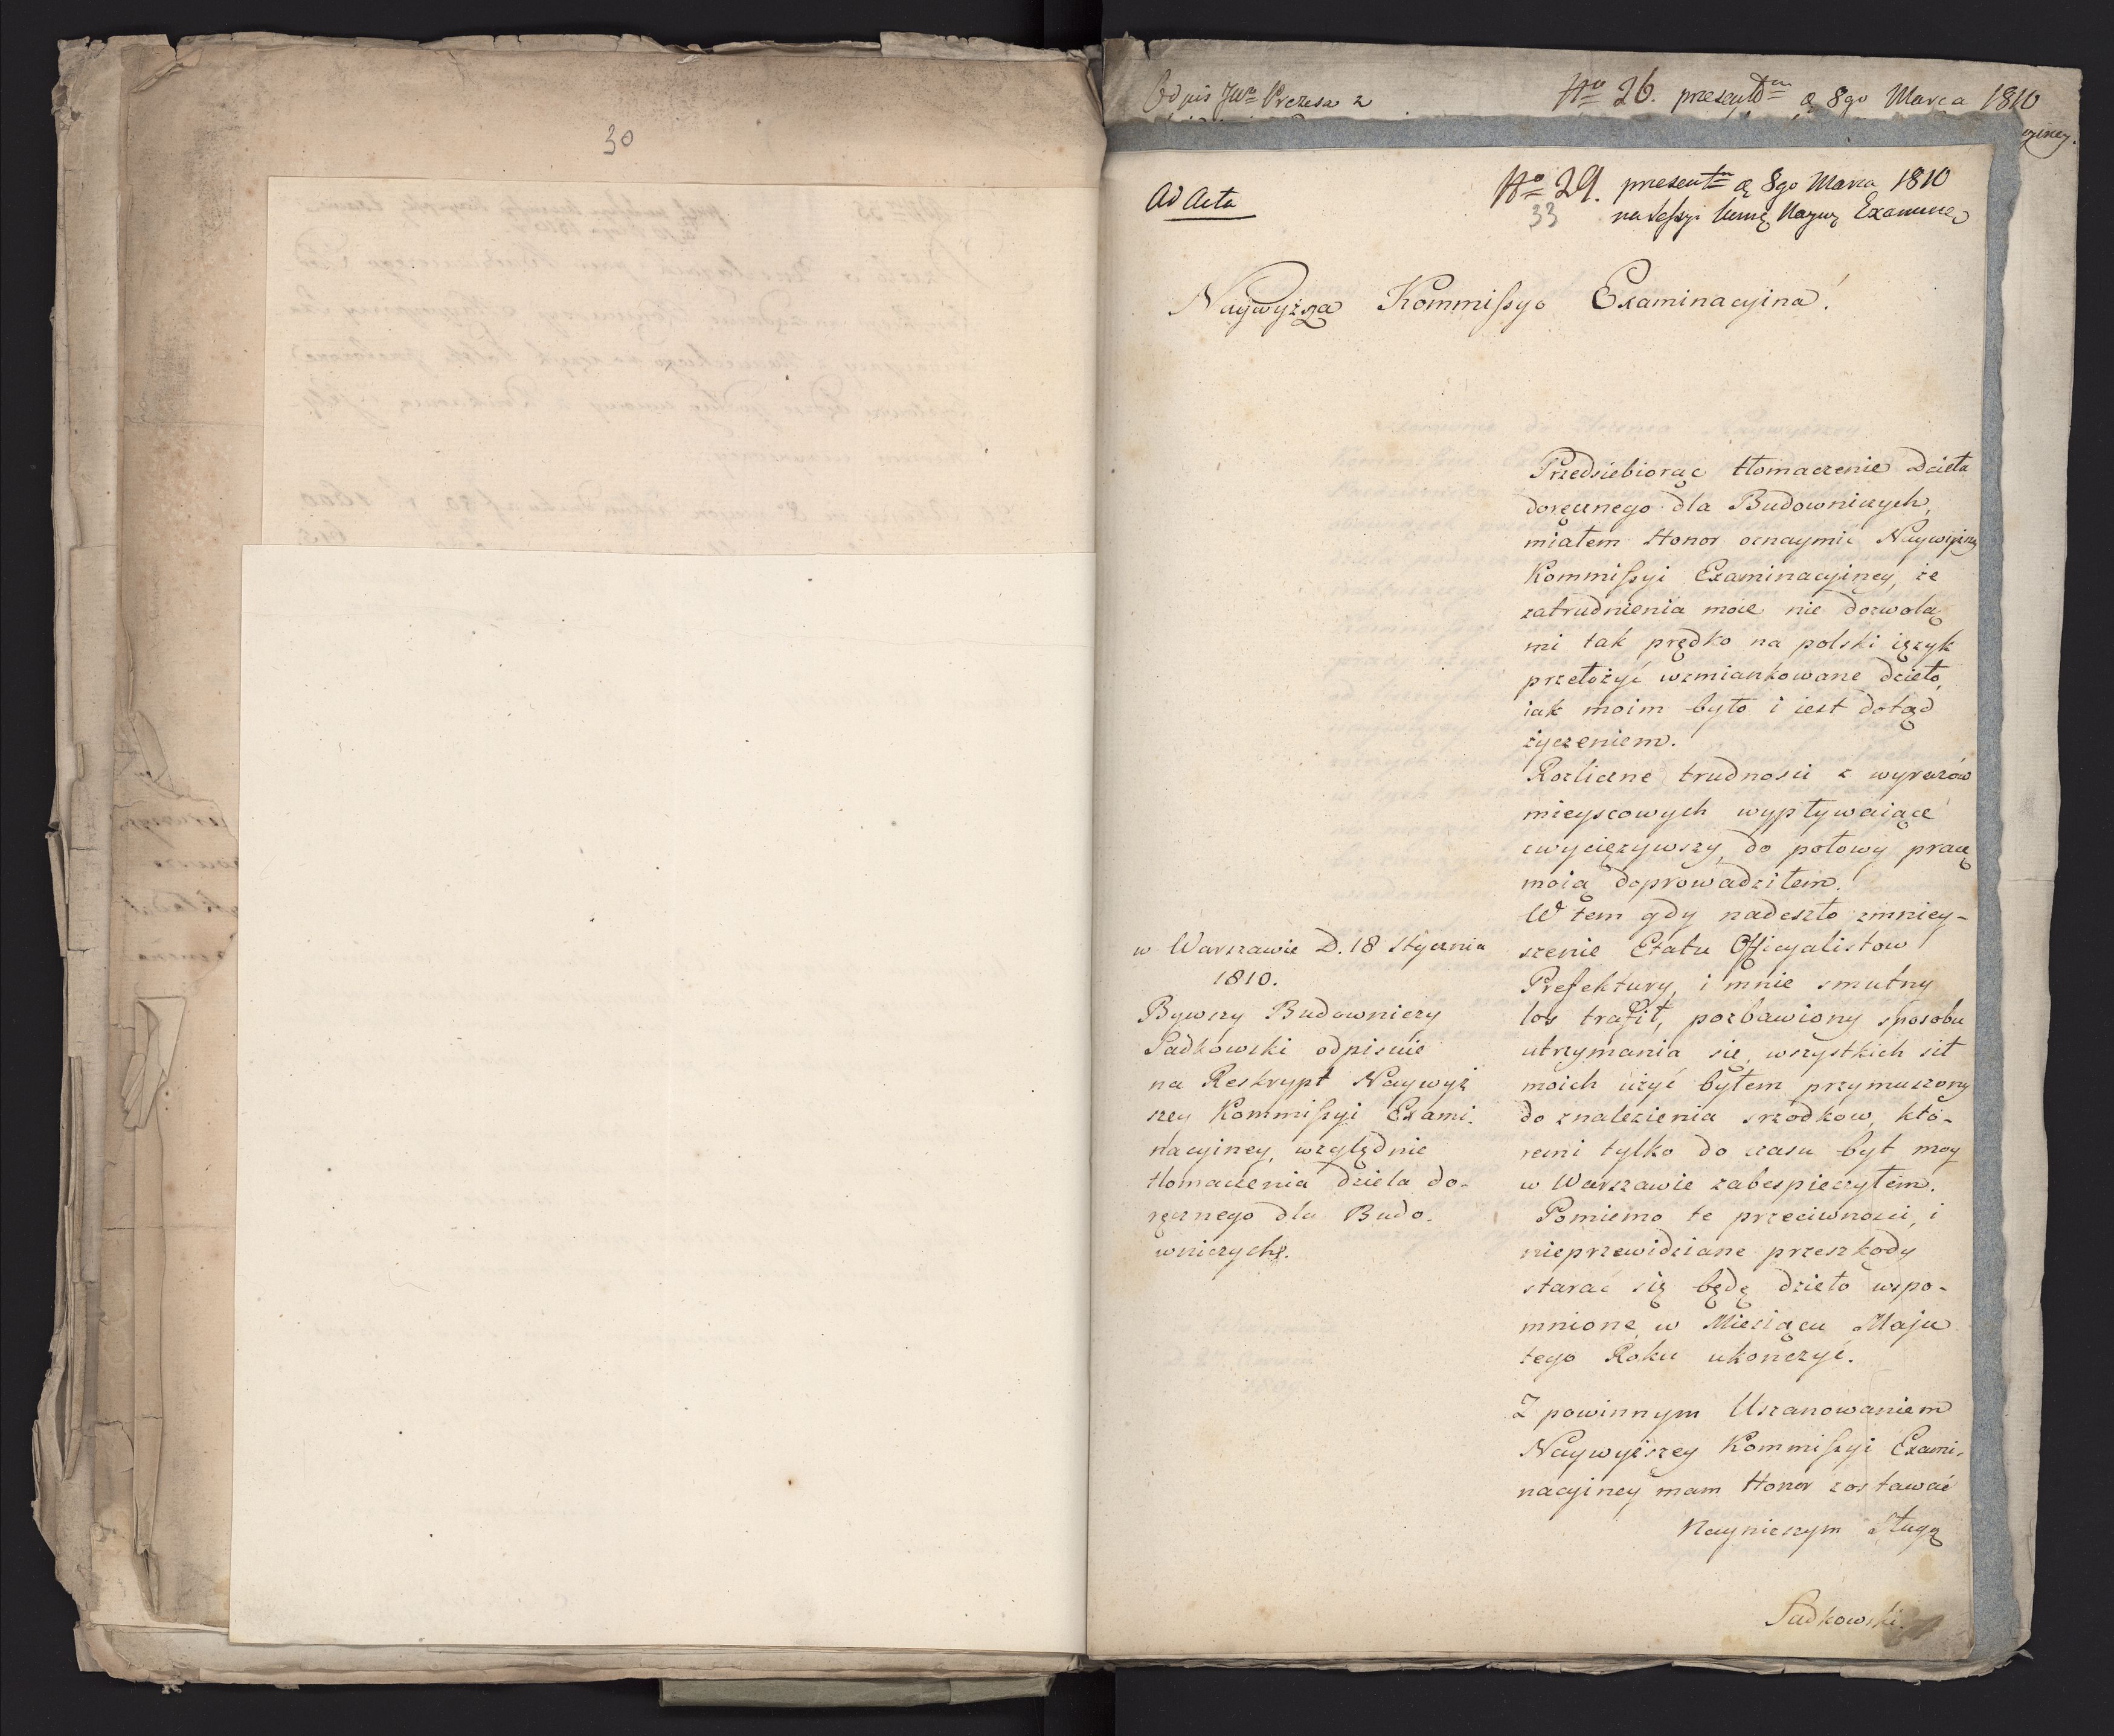 30
Odpis JWo Prezesa z
No 26. presentm d 8go Marca 1810
Ad Acta
No 29. presentm d 8go Marca 1810
33
na Sessyi Examine
Naywyższa Kommissyo Examinacyina!
Przedsiebiorąc tłomaczenie Dzieła
doręcznego dla Budowniczych,
miałem Honor oznaymić Naywyższy
Kommissyi Examinacyiney, że
zatrudnienia moie nie dozwolą
mi tak prędko na polski ięzyk
przełożyć wzmiankowane dzieło,
iak moim było i iest dotąd
życzeniem.
Rozliczne trudności z wyrazów
mieyscowych wypływaiące
zwyciężywszy, do połowy pracę
moią doprowadziłem.
W tem gdy nadeszło zmniey-
szenie Etatu Officyalistow
Prefektury, i mnie smutny
los trafił, pozbawiony sposobu
utrzymania się, wszystkich sił
moich użyć byłem przymuszony
do znalezienia srzodkow, któ-
remi tylko do czasu byt moy
w Warszawie zabespieczyłem.
Pomiemo te przeciwności, i
nieprzewidziane przeszkody
starać się będę dzieło wspo-
mnione w Miesiącu Maju
tego Roku ukonczyć.
Z powinnym Uszanowaniem
Naywyższey Kommissyi Exami-
nacyiney mam Honor zostawać
Nayniższym Sługą
Sadkowski.
w Warszawie D. 18 Stycznia
1810.
Bywszy Budowniczy
Sadkowski odpisuie
na Reskrypt Naywyż
szey Kommissyi Exami-
nacyiney, względnie
tłomaczenia dzieła do-
ręcznego dla Budo-
wniczych.